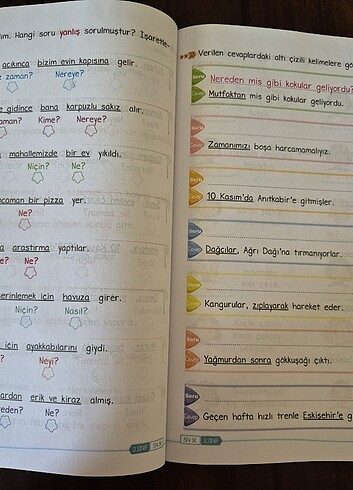 Hangi soru yanlış sorulmuştur? İşaretle-
acıkınca bizim evin kapısına gelir.
zaman? Nereye?
gidince bana karpuzlu sakız alır.
Kime? Nereye?
mahallemizde bir ev yıkıldı.
Niçin? Ne?
bir pizza yer.
Ne?
araştırma yaptılar.
Ne?
serinlemek için havuza girer.
Niçin? Nasıl?
için ayakkabılarını giydi.
Neyi?
erik ve kiraz almış.
Ne?
3.SINIF
Verilen cevaplardaki altı çizili kelimelere gö
Soru
Nereden mis gibi kokular geliyordu?
Cevap
Mutfaktan mis gibi kokular geliyordu.
Soru
Cevap
Zamanımızı boşa harcamamalıyız.
Soru
Cevap
10 Kasım'da Anıtkabir'e gitmişler.
Soru
Cevap
Dağcılar, Ağrı Dağı'na tırmanıyorlar.
Soru
Cevap
Kangurular, zıplayarak hareket eder.
Soru
Cevap
Yağmurdan sonra gökkuşağı çıktı.
Soru
Cevap
Geçen hafta hızlı trenle Eskişehir'e g
3.SINIF